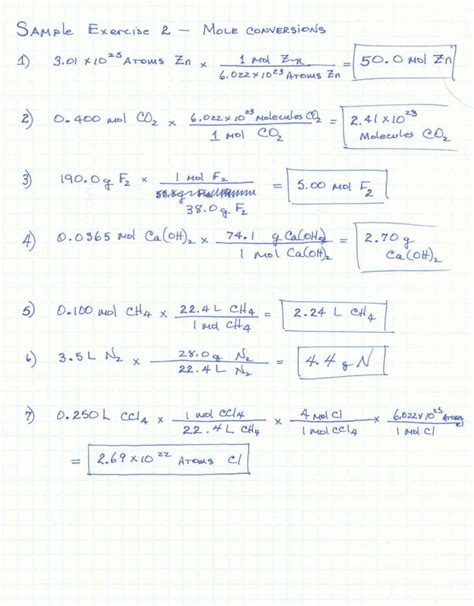 SAMPLE EXERCISE 2 – MOLE CONVERSIONS
1) 3.01 x 10²⁵ ATOMS Zn x 1 mol Zn / 6.022 x 10²³ ATOMS Zn = 50.0 mol Zn
2) 0.400 mol CO₂ x 6.022 x 10²³ molecules CO₂ / 1 mol CO₂ = 2.41 x 10²³ Molecules CO₂
3) 190.0 g F₂ x 1 mol F₂ / 38.0 g F₂ = 5.00 mol F₂
4) 0.0365 mol Ca(OH)₂ x 74.1 g Ca(OH)₂ / 1 mol Ca(OH)₂ = 2.70 g Ca(OH)₂
5) 0.100 mol CH₄ x 22.4 L CH₄ / 1 mol CH₄ = 2.24 L CH₄
6) 3.5 L N₂ x 28.0 g N₂ / 22.4 L N₂ = 4.4 g N
7) 0.250 L CCl₄ x 1 mol CCl₄ / 22.4 L CH₄ x 4 mol Cl / 1 mol CCl₄ x 6.022 x 10²³ ATOMS Cl / 1 mol Cl
= 2.69 x 10²² ATOMS Cl